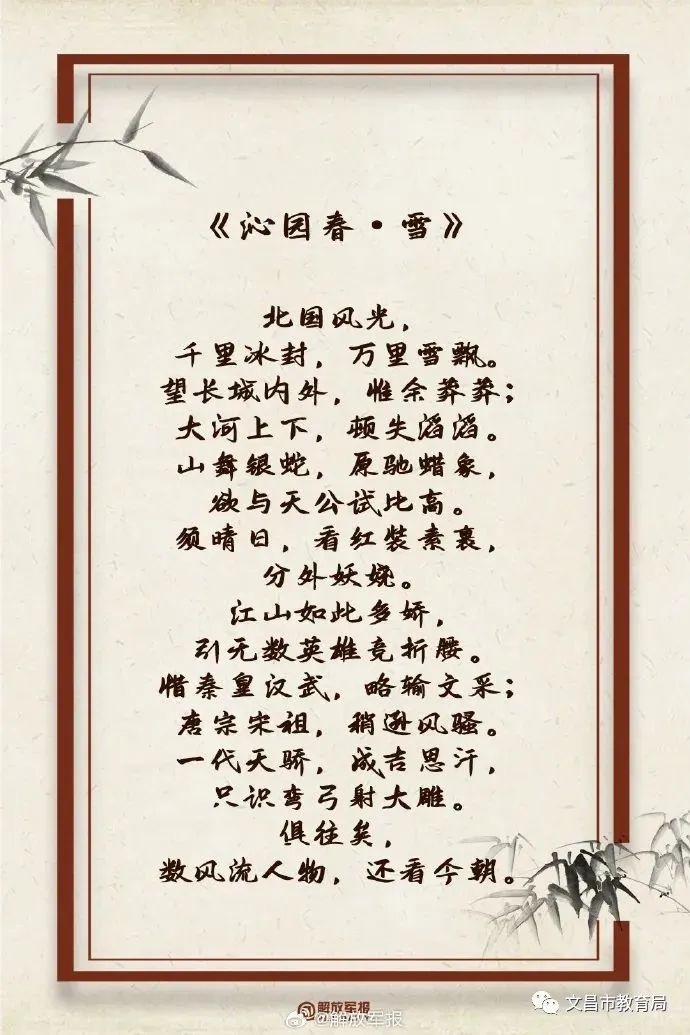 《沁园春·雪》
北国风光，
千里冰封，万里雪飘。
望长城内外，惟余莽莽；
大河上下，顿失滔滔。
山舞银蛇，原驰蜡象，
欲与天公试比高。
须晴日，看红装素裹，
分外妖娆。
江山如此多娇，
引无数英雄竞折腰。
惜秦皇汉武，略输文采；
唐宗宋祖，稍逊风骚。
一代天骄，成吉思汗，
只识弯弓射大雕。
俱往矣，
数风流人物，还看今朝。
@解放军报
@解放军报
文昌市教育局